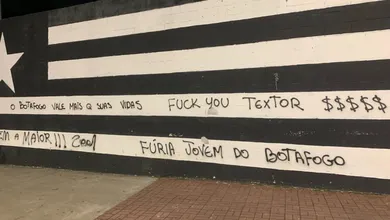 O BOTAFOGO VALE MAIS Q SUAS VIDAS FUCK YOU TEXTOR $$$$$
A MAIOR!!! FÚRIA JOVEM DO BOTAFOGO